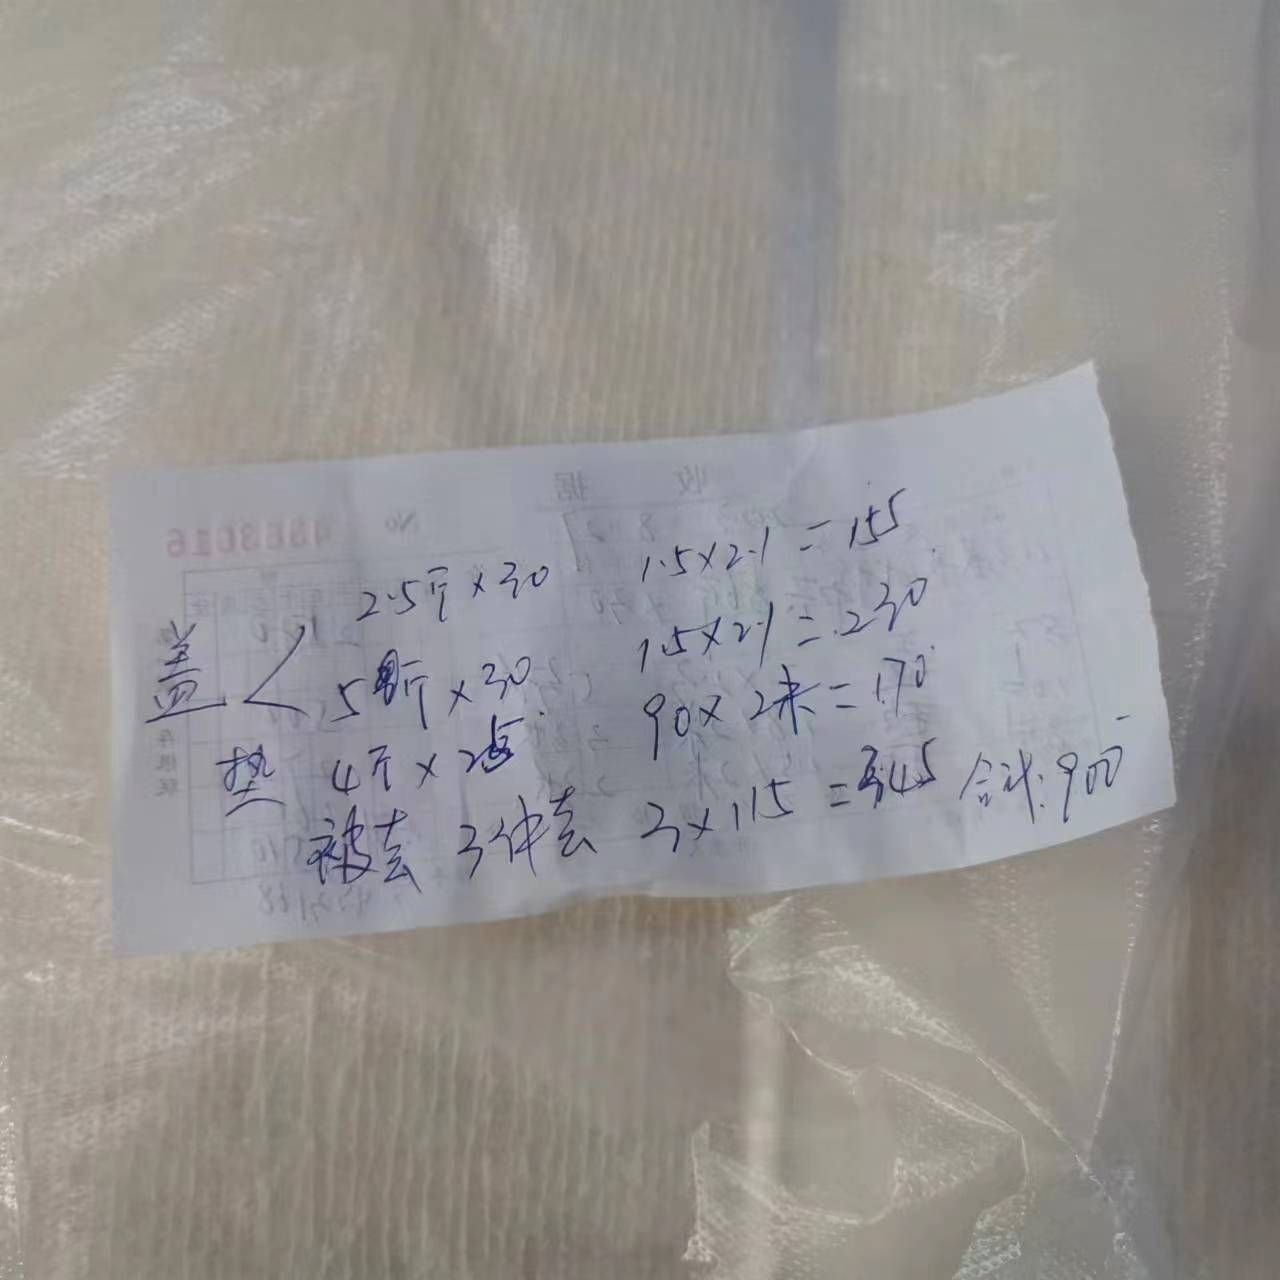 收 据
No 4863016
2.5斤×30 1.5×2.1=155
盖 5斤×30 1.5×2.1=230
垫 4斤×25 90×2米=170
被套 3件套 3×115=345 合计:900